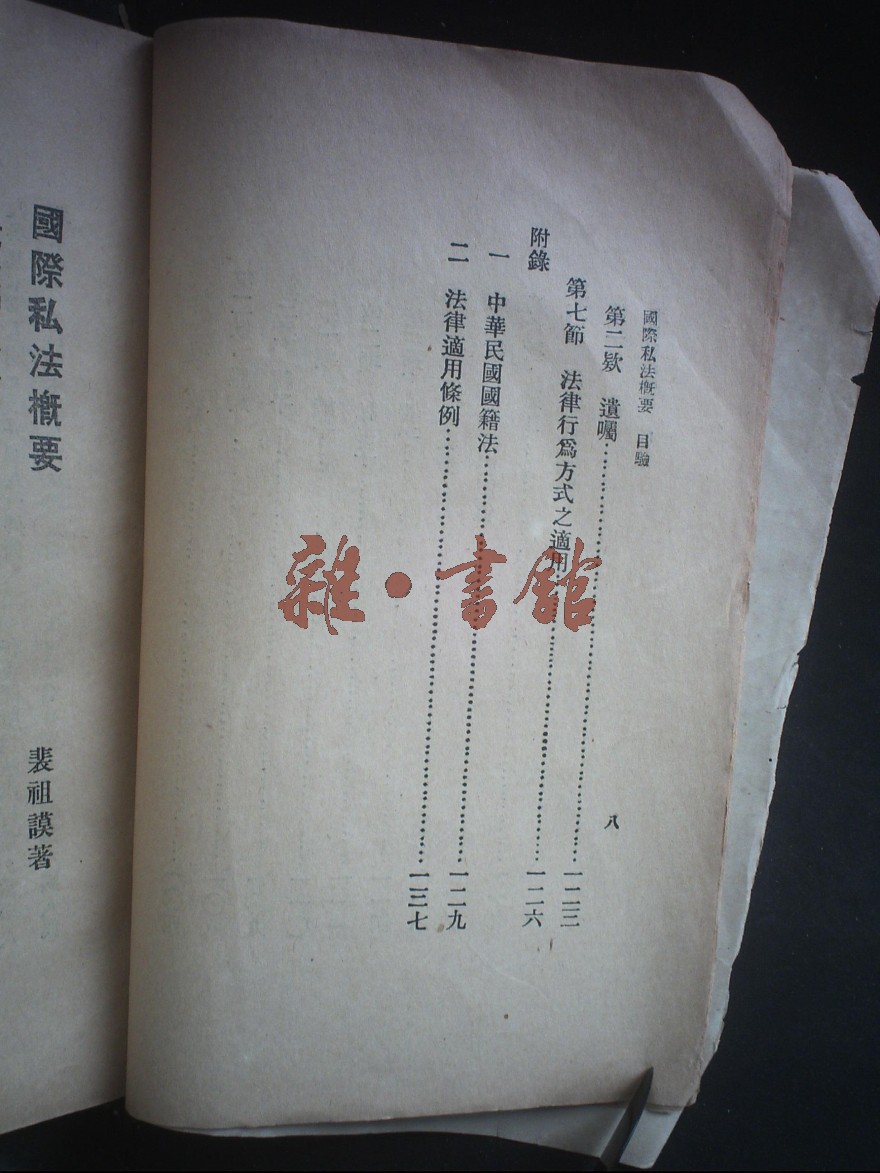 國際私法概要 目錄
第二欵 遺囑……一二三
第七節 法律行爲方式之適用……一二六
附錄
一 中華民國國籍法……一二九
二 法律適用條例……一三七
八
國際私法概要
裴祖謨著
雜·書館